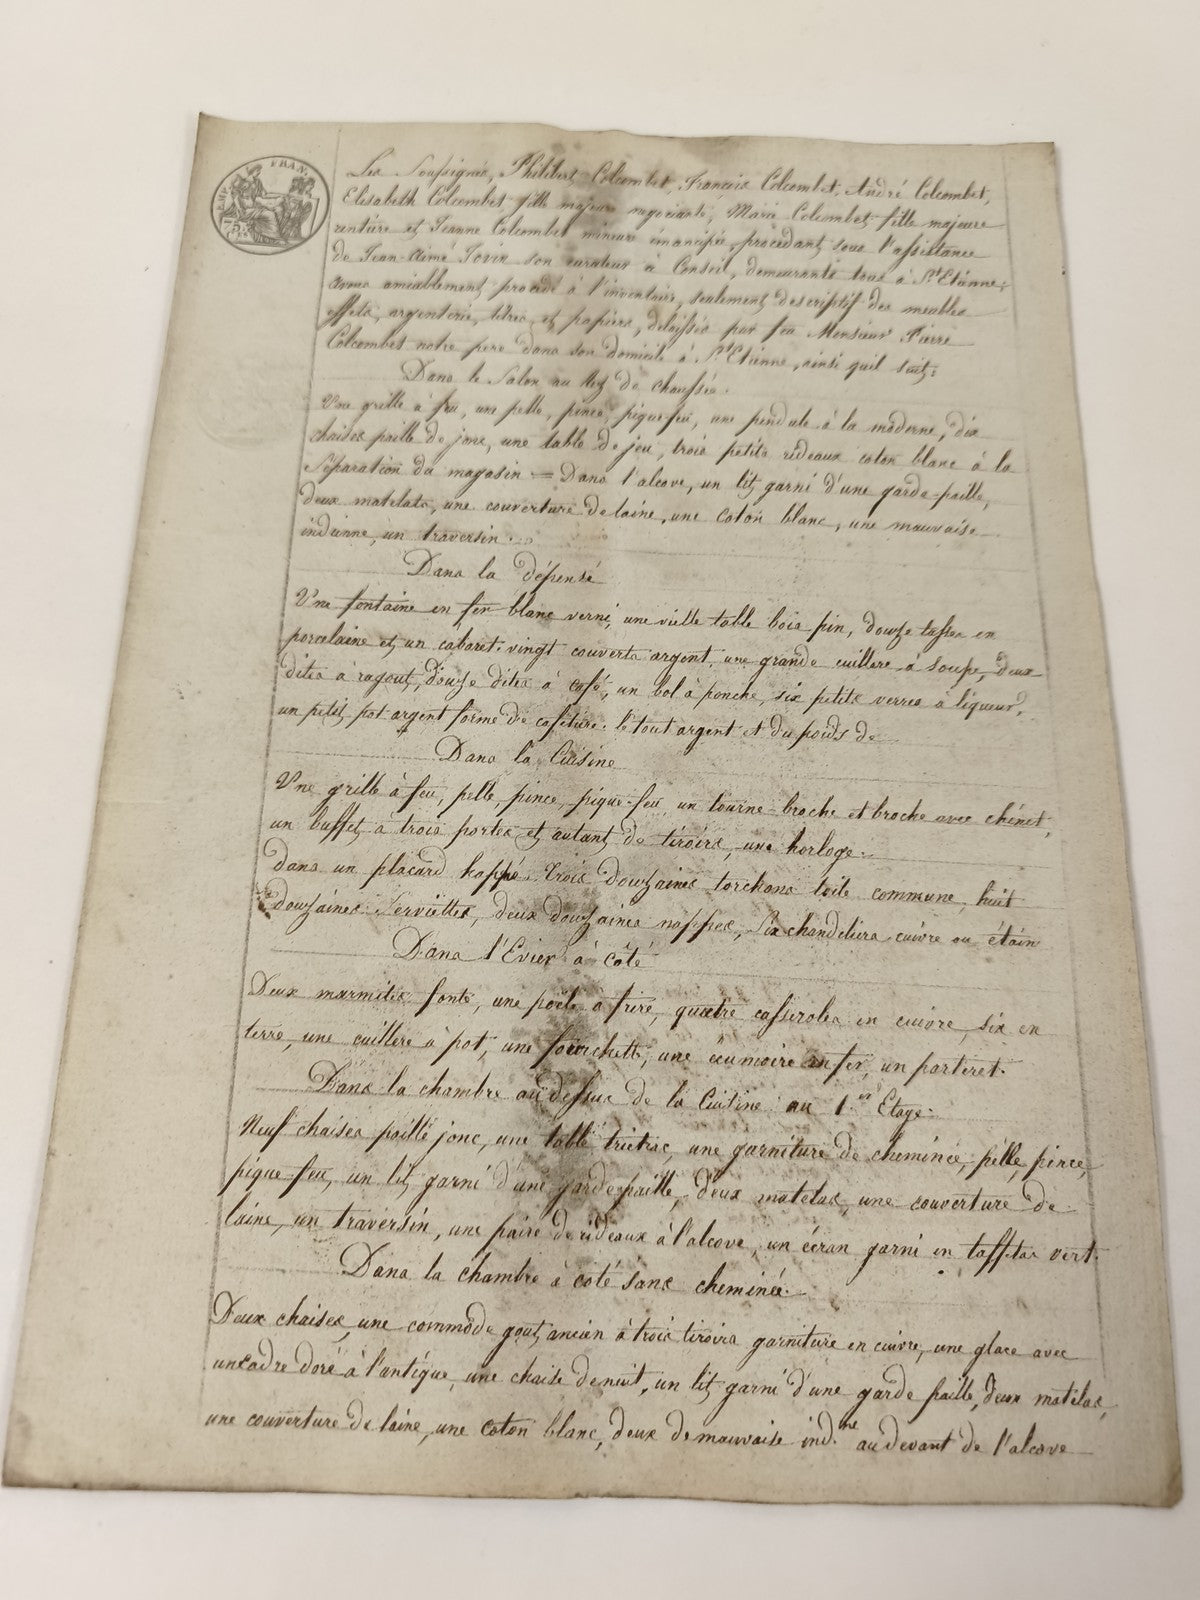 FRAN.
Les Soussignés, Philibert Colcombet, François Colcombet, André Colcombet,
Elisabeth Colcombet fille majeure negociante, Marie Colcombet fille majeure
rentière et Jeanne Colcombet mineure émancipée, procédant sous l'assistance
de Jean-Aimé Jovin son curateur à Conseil, demeurants tous à St Etienne;
avons amiablement procédé à l'inventaire, seulement descriptif des meubles
effets, argenterie, titres, et papiers, délaissés par feu Monsieur Pierre
Colcombet notre pere dans son domicile à St Etienne, ainsi quil suit:
Dans le Salon au Rez de chaussée.
Une grille à feu, une pelle, pince, pique-feu, une pendule à la moderne, dix
chaises paille de jonc, une table de jeu, trois petits rideaux coton blanc à la
séparation du magasin = Dans l'alcove, un lit garni d'une garde-paille,
deux matelats, une couverture de laine, une coton blanc, une mauvaise
indienne, un traversin.
Dans la dépense
Une fontaine en fer blanc verni, une vielle table bois pin, douze tasses en
porcelaine et un cabaret. vingt couverts argent, une grande cuillere à soupe, deux
dites à ragout, douze dites à café, un bol à ponche, six petits verres à liqueur,
un petit pot argent forme de cafetière. le tout argent et du poids de
Dans la Cuisine
Une grille à feu, pelle, pince, pique-feu, un tourne-broche et broche avec chênet,
un buffet à trois portes et autant de tiroirs, une horloge.
dans un placard trois douzaines torchons toile commune, huit
douzaines serviettes, deux douzaines nappes, six chandeliers cuivre ou étain
Dans l'Evier à côté
Deux marmites fonte, une poële à frire, quatre casseroles en cuivre, six en
terre, une cuillere à pot, une fourchette, une écumoire en fer, un parteret.
Dans la chambre au dessus de la Cuisine au 1er Etage.
Neuf chaises paille jonc, une table trictrac, une garniture de cheminée, pelle, pince,
pique-feu, un lit garni d'une garde-paille, deux matelas, une couverture de
laine, un traversin, une paire de rideaux à l'alcove, un écran garni en taffetas vert.
Dans la chambre à coté sans cheminée.
Deux chaises, une commode gout ancien à trois tiroirs garniture en cuivre, une glace avec
un cadre doré à l'antique, une chaise de nuit, un lit garni d'une garde paille, deux matelas,
une couverture de laine, une coton blanc, deux de mauvaise indne au devant de l'alcove